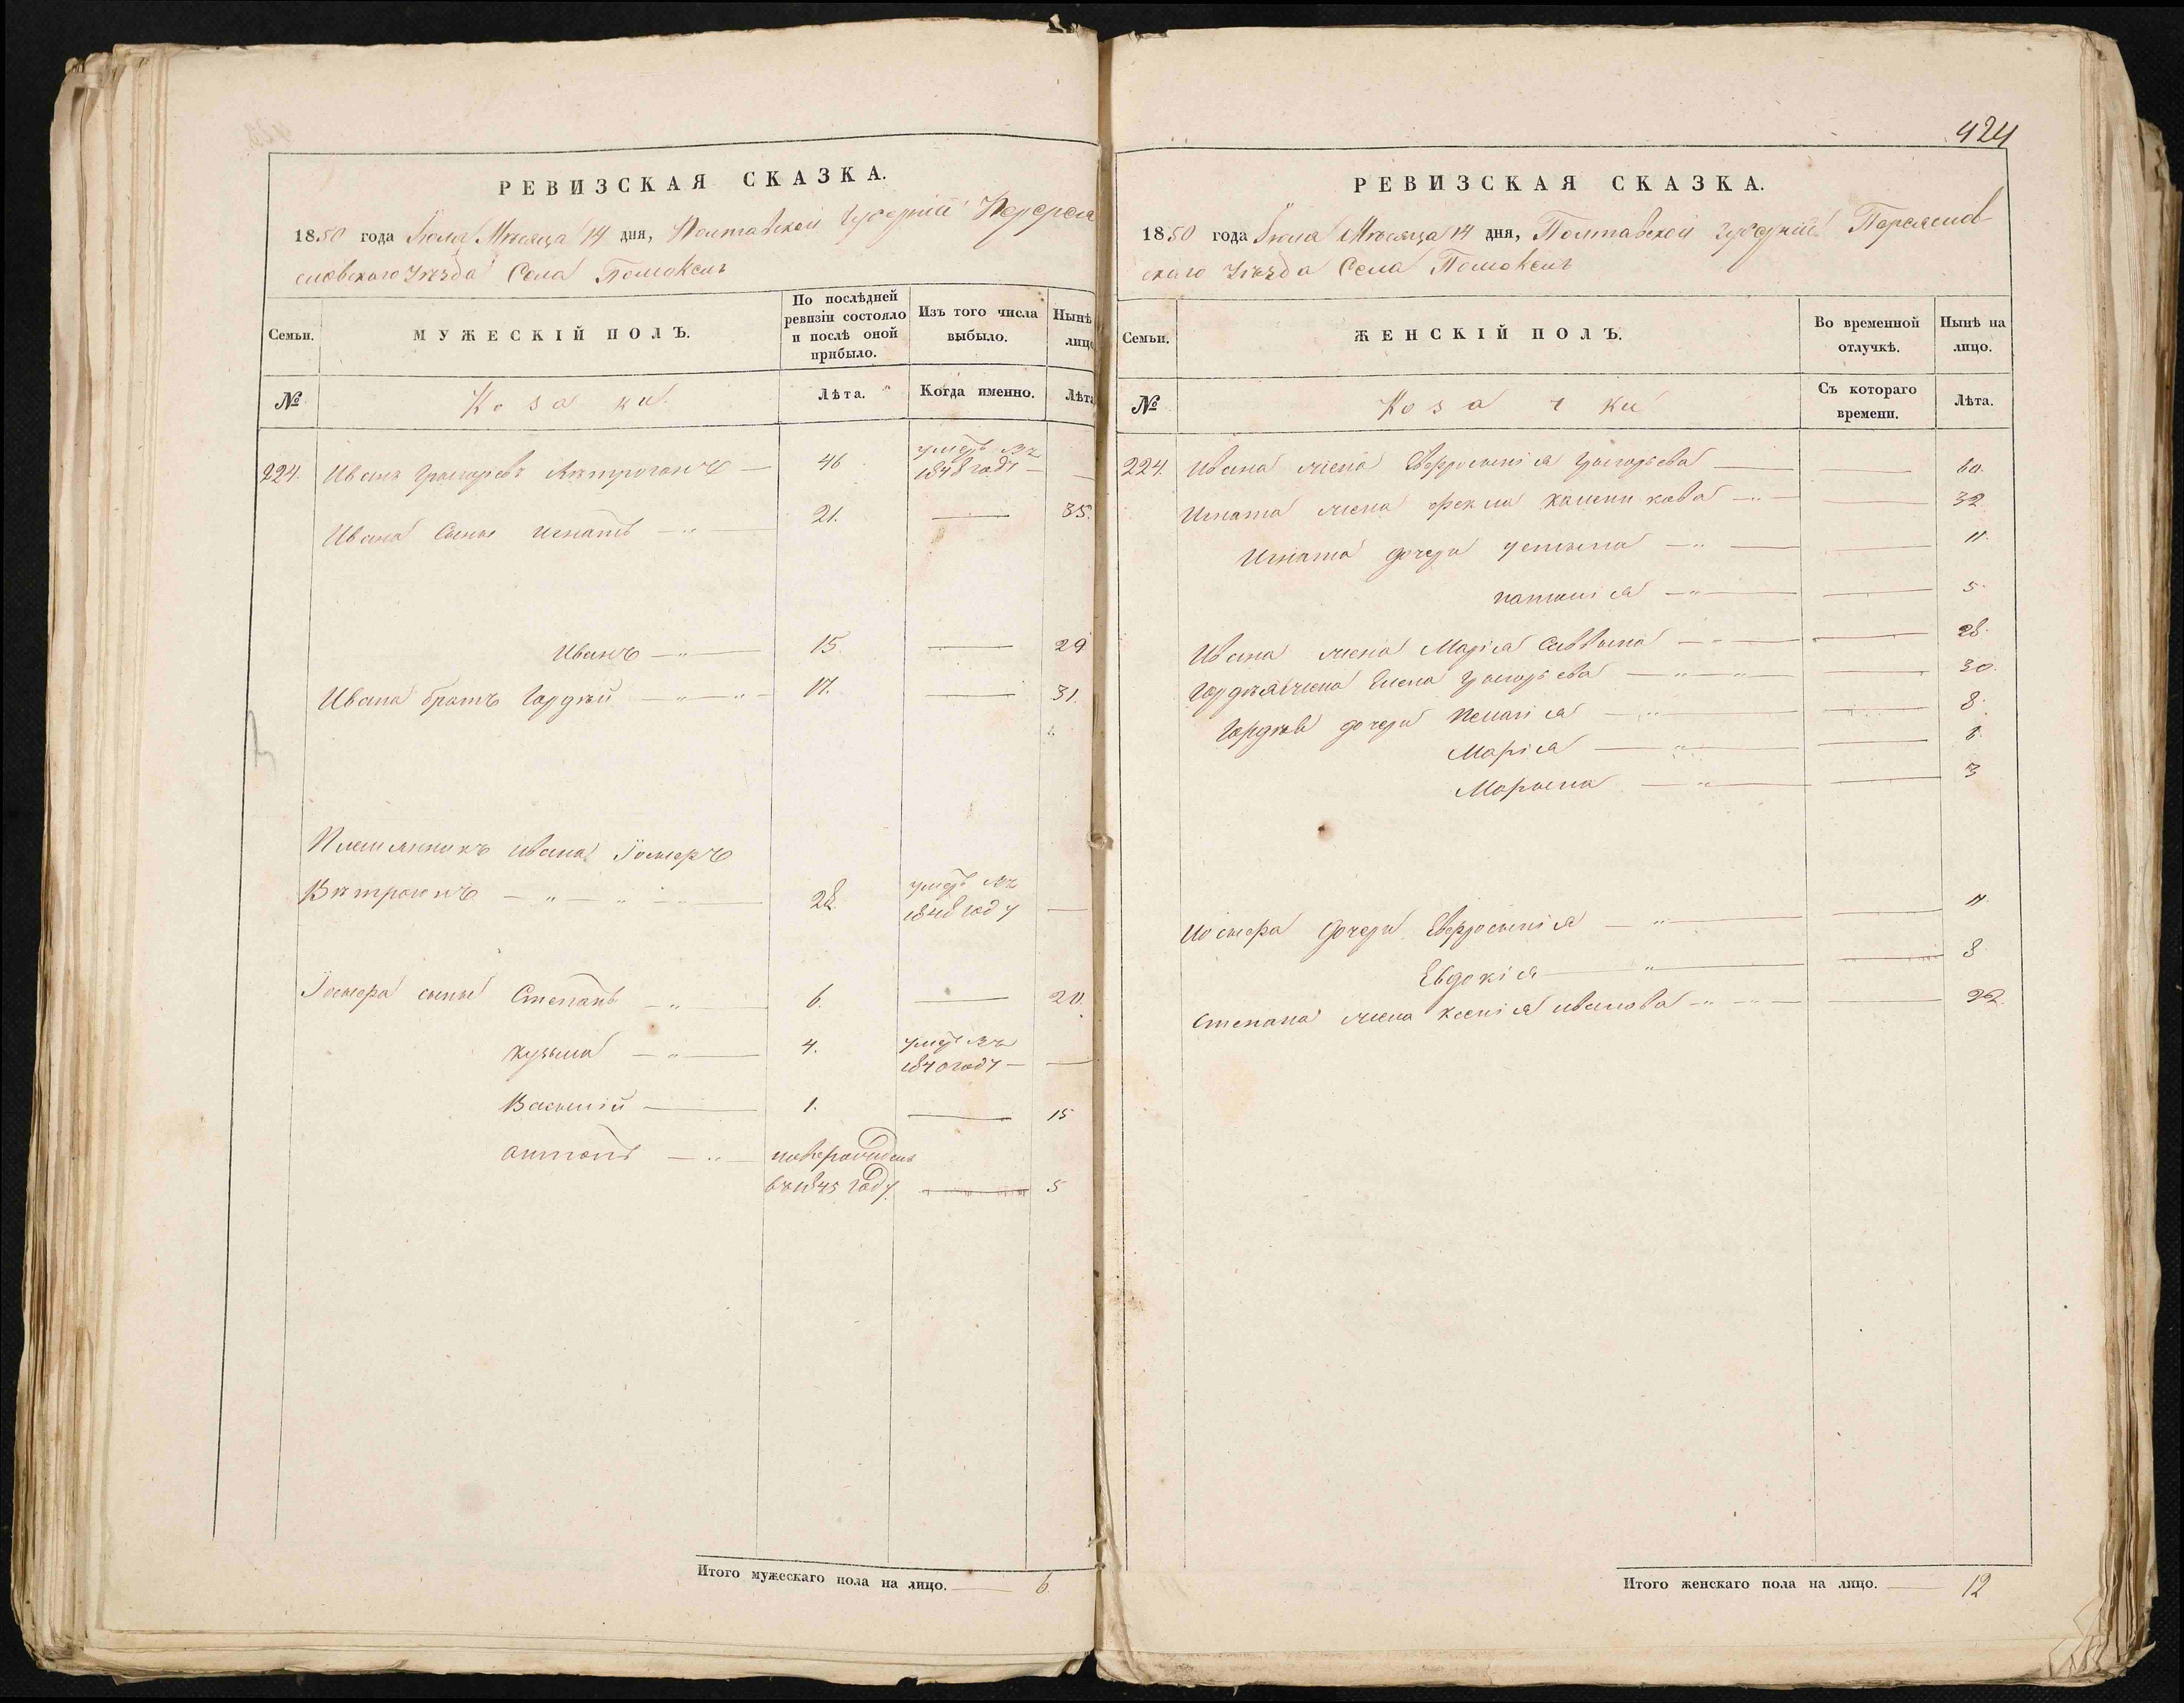 РЕВИЗСКАЯ СКАЗКА.
1850 года Июля Мѣсяца 14 дня, Полтавской Губерніи Переяс
ловскаго Уѣзда Села Помоклъ
Семьи.
МУЖЕСКІЙ ПОЛЪ.
По послѣдней ревизіи состояло и послѣ оной прибыло.
Изъ того числа выбыло.
Нынѣ
лицо
№
Козаки
Лѣта.
Когда именно.
Лѣта
224. Иванъ Григорьевъ 46 умеръ въ
1848 году
Ивана сыны Игнатъ 21. 35.
Иванъ 15. 29
Ивана братъ Гордѣй 17. 31.
Племянникъ Ивана
Вѣтрогонъ 28. умеръ въ
1848 году
сыны Степанъ 6. 20.
Кузьма 4. умеръ въ
1840 году
Василій 1. 15
Антонъ новорожденъ
въ 1845 году 5
Итого мужескаго пола на лицо. 6.
424
РЕВИЗСКАЯ СКАЗКА.
1850 года Июля Мѣсяца 14 дня, Полтавской Губерніи Переяслов
скаго Уѣзда Села Помоклъ
Семьи.
ЖЕНСКІЙ ПОЛЪ.
Во временной отлучкѣ.
Нынѣ на лицо.
№
Козачки
Съ котораго времени.
Лѣта.
224. Ивана жена Евфросинія Григорьева 60.
Игната жена Фекла 32
Игната дочери Устина 11.
5.
Ивана жена Марія Саввина 28.
Гордѣя жена Елена Григорьева 30.
Гордѣя дочери Пелагія 8.
Марія 6.
Марина 3
дочери Евфросинія 11.
Евдокія 8.
Степана жена Ксенія Иванова 22.
Итого женскаго пола на лицо. 12